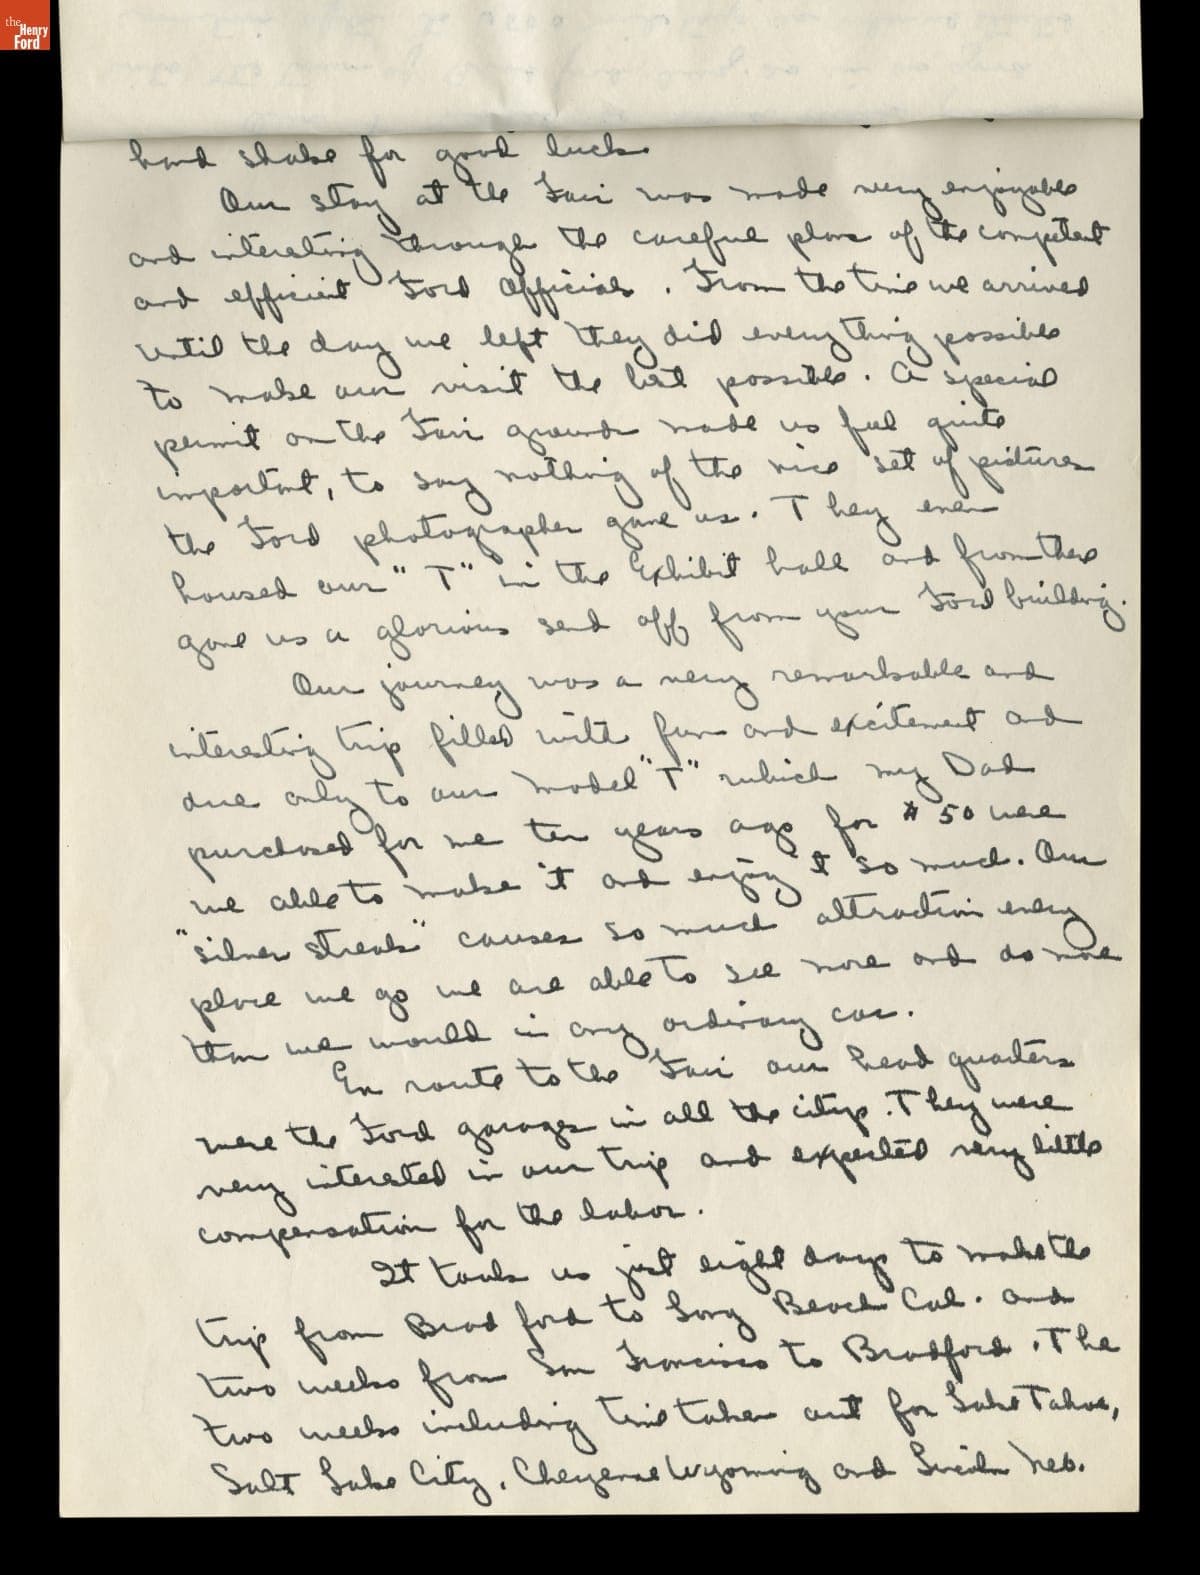 the
Henry
Ford
hand shake for good luck.
Our stay at the Fair was made very enjoyable
and interesting through the careful plans of the competent
and efficient Ford Officials. From the time we arrived
until the day we left they did everything possible
to make our visit the best possible. A special
permit on the Fair grounds made us feel quite
important, to say nothing of the nice set of pictures
the Ford photographer gave us. They even
housed our "T" in the Exhibit hall and from there
gave us a glorious send off from your Ford building.
Our journey was a very remarkable and
interesting trip filled with fun and excitement and
due only to our model "T" which my Dad
purchased for me ten years ago for $50 were
we able to make it and enjoy it so much. Our
"silver streak" causes so much attraction every
place we go we are able to see more and do more
than we would in any ordinary car.
En route to the Fair our head quarters
were the Ford garages in all the citys. They were
very interested in our trip and expected very little
compensation for the labor.
It took us just eight days to make the
trip from Brad ford to Long Beach Cal. and
two weeks from San Francisco to Bradford. The
two weeks including time taken out for Lake Tahoe,
Salt Lake City, Cheyenne Wyoming and Lincoln Neb.